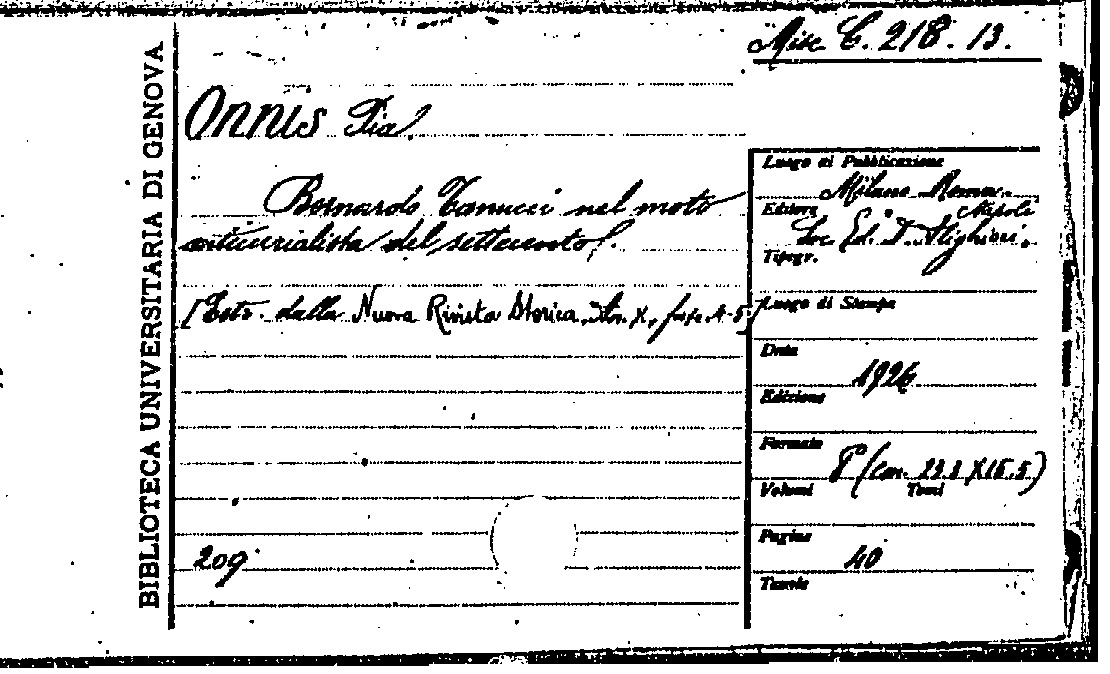 BIBLIOTECA UNIVERSITARIA DI GENOVA
Misc C. 218. 13.
ONNIS Pia
Bernardo Tanucci nel moto
anticurialista del settecento.
[Estr. dalla Nuova Rivista Storica, An. X, fasc. 4-5]
Luogo di Pubblicazione
Milano Roma
Napoli
Editore
Soc. Ed. D. Alighieri.
Tipogr.
Luogo di Stampa
Data
1926
Edizione
Formato
8° (cm. 23.2 X 15.5)
Volumi Tomi
Pagine
40
Tavole
209